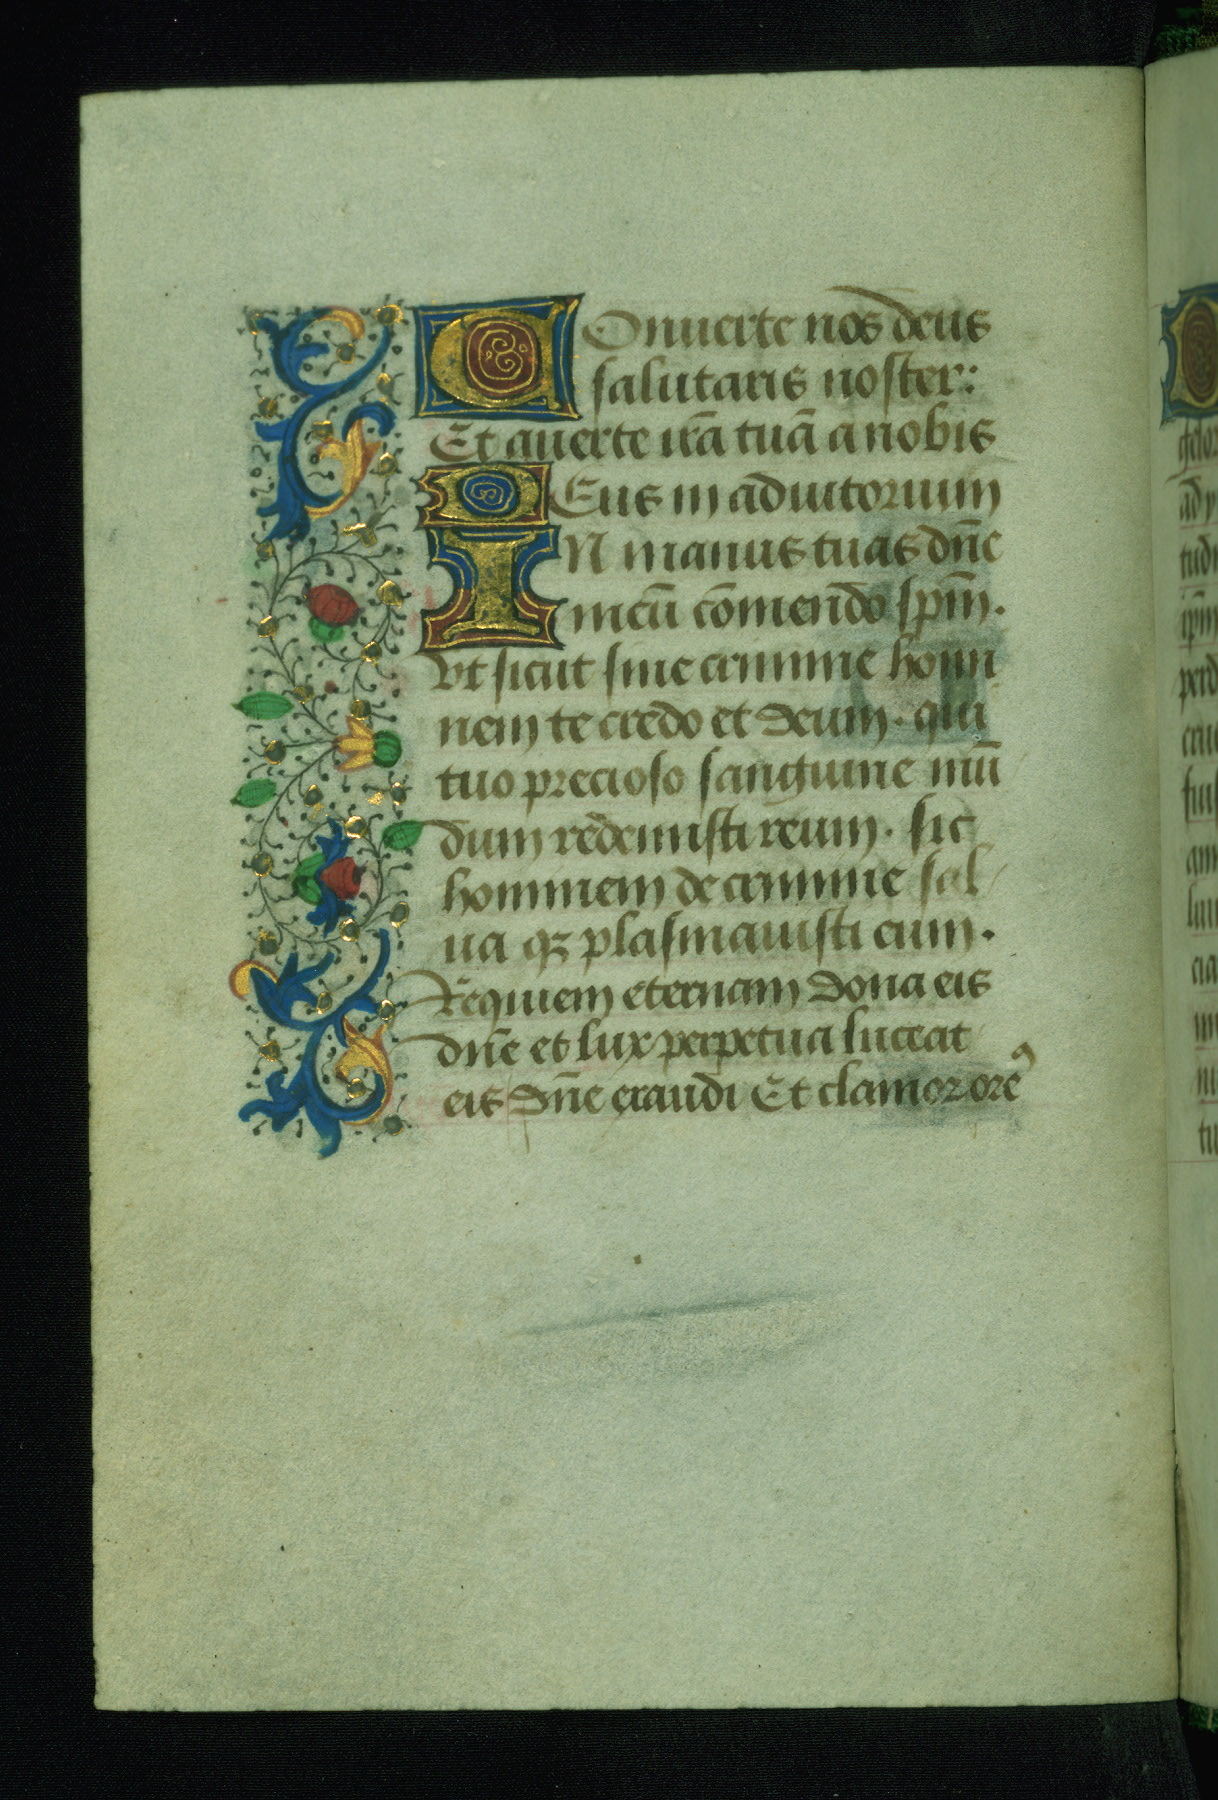 Conuerte nos deus
salutaris noster:
Et auerte irā tuā a nobis
Deus in adiutorium
IN manus tuas dn̄e
meū cōmendo sp̄m.
Vt sicut sine crimine homi
nem te credo et deum. qui
tuo precioso sanguine mū
dum redemisti reum. sic
hominem de crimine sal
ua qꝫ plasmauisti cum.
Requiem eternam dona eis
dn̄e et lux perpetua luceat
eis Dn̄e exaudi Et clamor orēꝰ